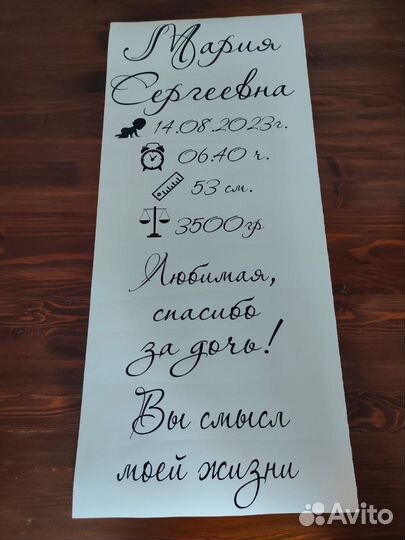 Мария
Сергеевна
14.08.2023г.
06.40 ч.
53 см.
3500гр
Любимая,
спасибо
за дочь!
Вы смысл
моей жизни
Avito